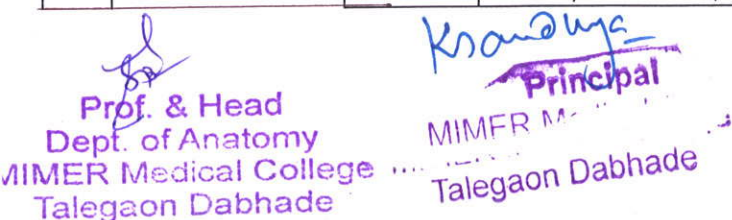 Prof. & Head
Dept. of Anatomy
MIMER Medical College
Talegaon Dabhade
Principal
MIMER
Talegaon Dabhade